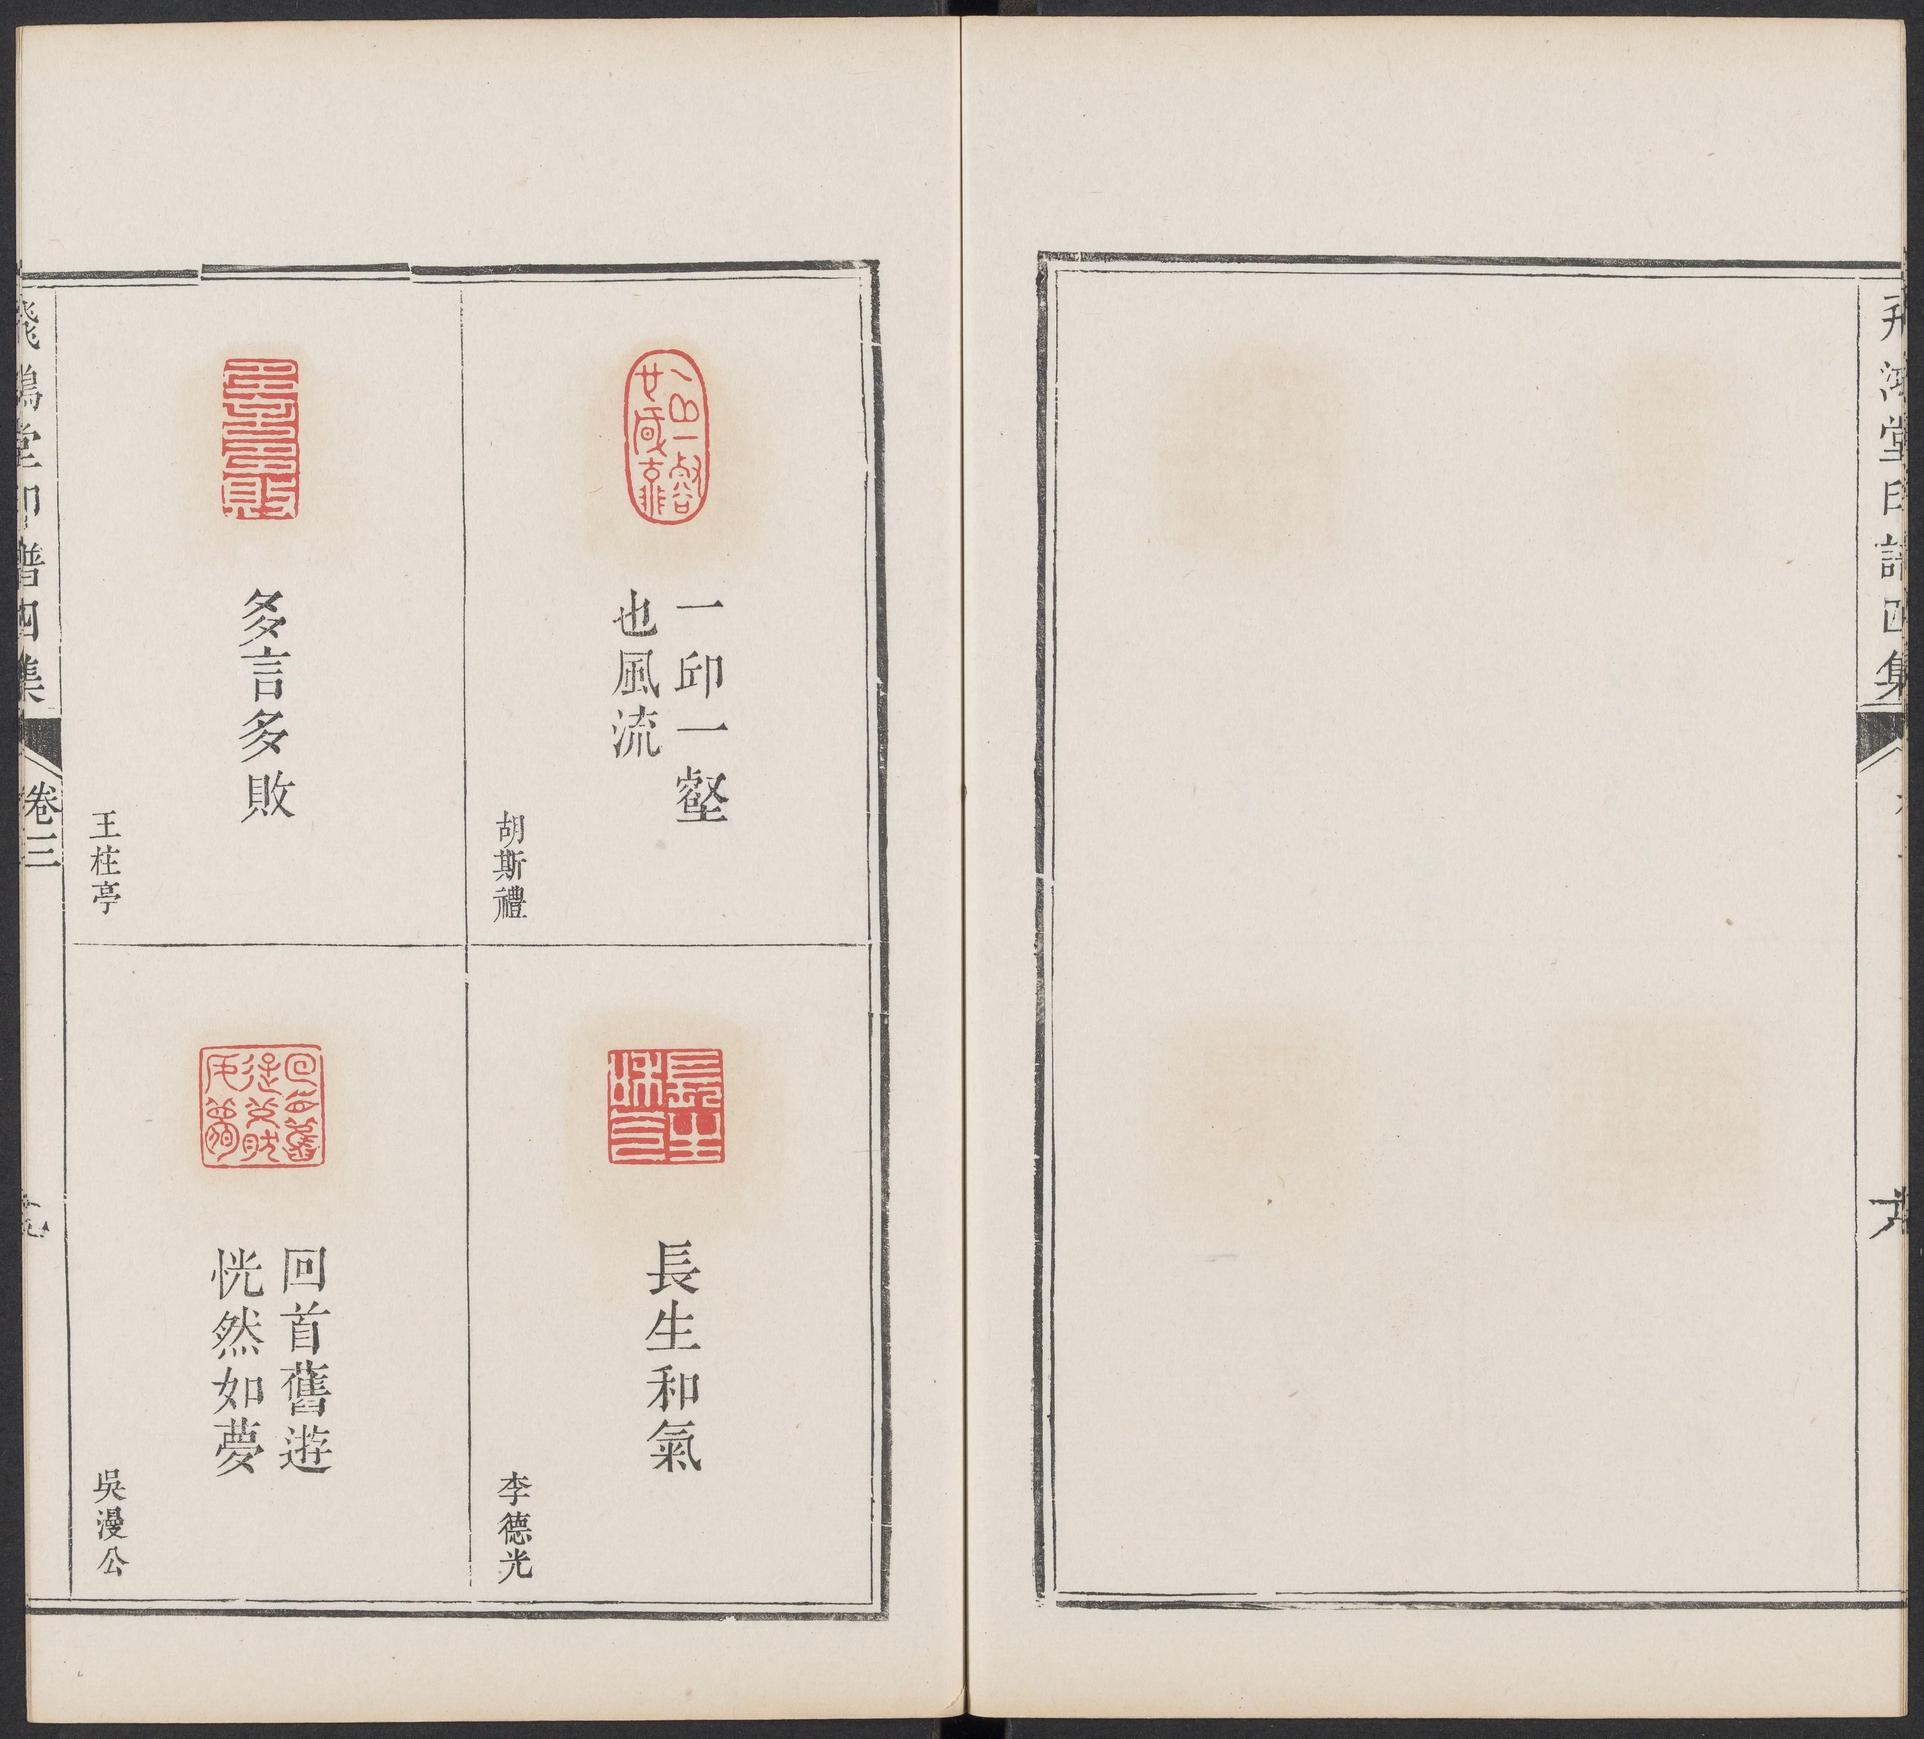 飛鴻堂印譜四集
六
一邱一壑
也風流
胡斯禮
長生和氣
李德光
多言多敗
王柱亭
回首舊遊
恍然如夢
吳漫公
飛鴻堂印譜四集
卷三